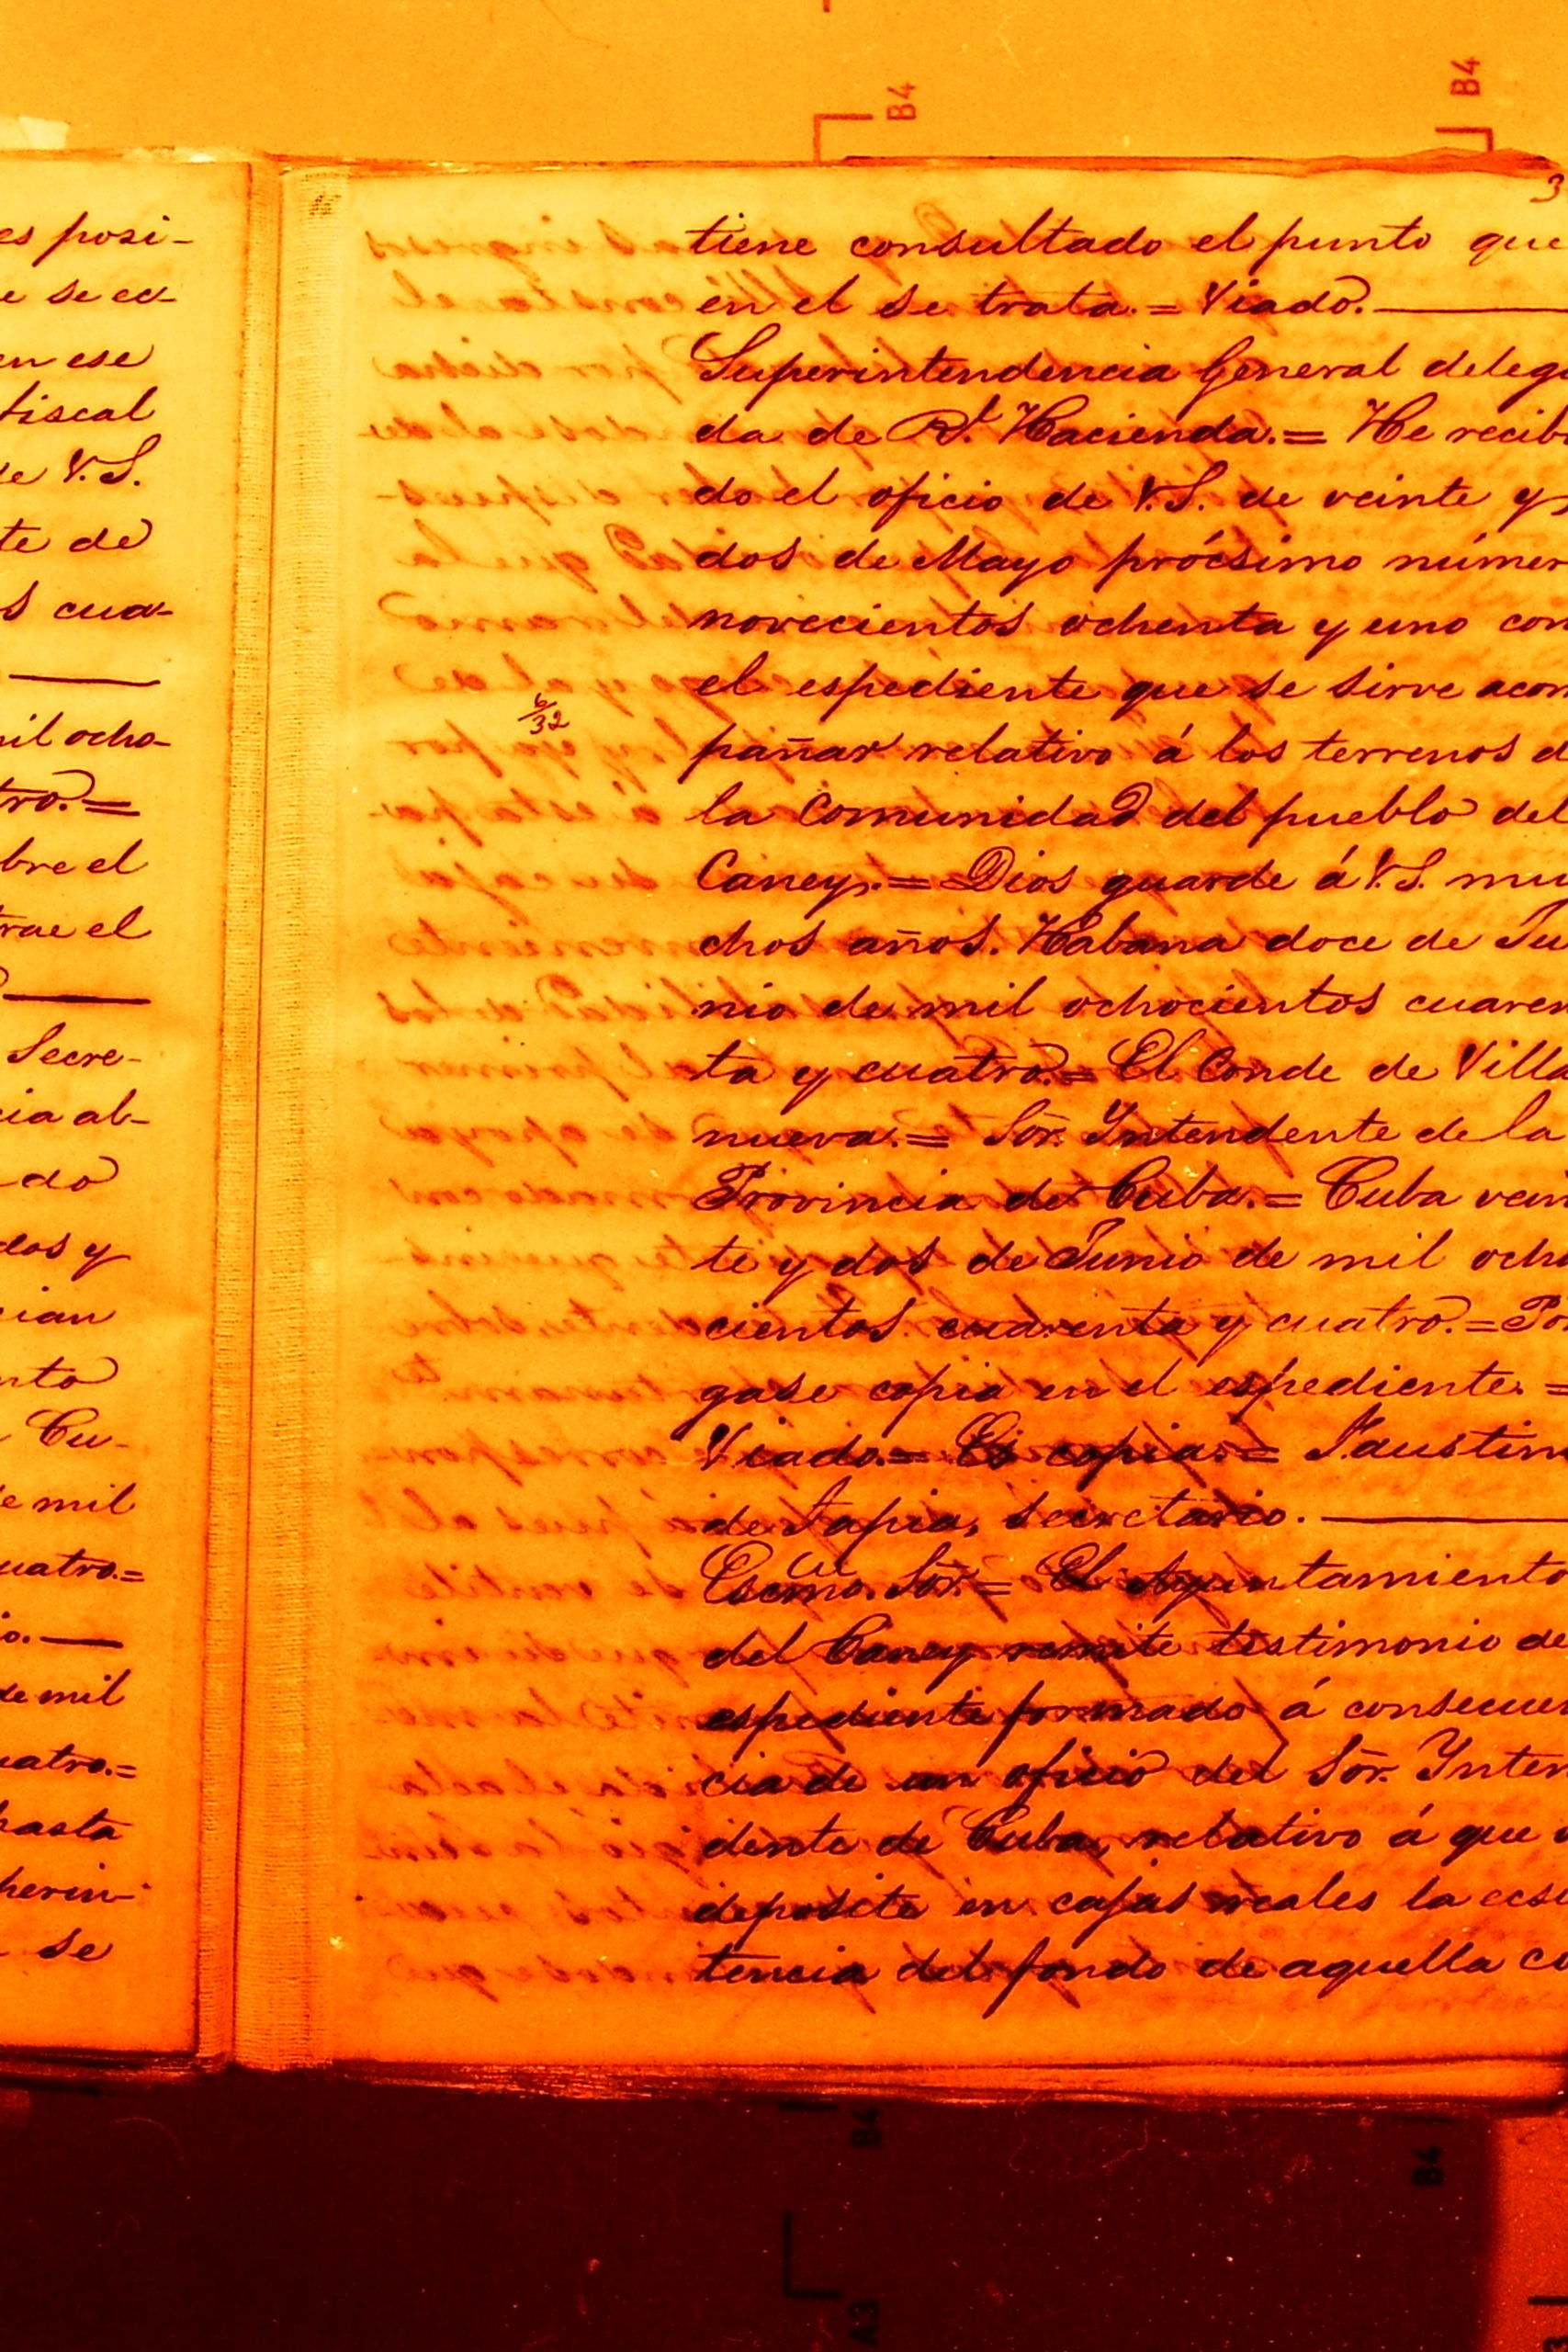 B4
B4
es posi-
e se ev-
en ese
fiscal
de V.S.
te de
s cua-
mil ocho-
tro.=
bre el
trae el
Secre-
cia ab-
do
dos y
cian
nto
Cu-
de mil
uatro.=
io.
de mil
uatro.=
hasta
herin-
se
3
tiene consultado el punto que
en el se trata.= Viado.
Superintendencia General delega
da de Rl. Hacienda.= He recibi
do el oficio de V.S. de veinte y
dos de Mayo prócsimo númer
novecientos ochenta y uno con
el espediente que se sirve acom
6/32
pañar relativo á los terrenos d
la Comunidad del pueblo del
Caney.= Dios guarde á V.S. mu
chos años. Habana doce de Ju
nio de mil ochocientos cuaren
ta y cuatro.= El Conde de Villa
nueva.= Sōr. Yntendente de la
Provincia de Cuba.= Cuba vein
te y dos de Junio de mil ocho
cientos cuarenta y cuatro.= Pón
gase copia en el espediente.=
Viado.= Es copia.= Faustin
de Tapia, secretario.
Escmo. Sōr.= El Ayuntamiento
del Caney remite testimonio de
espediente formado á consecuen
cia de un oficio del Sōr. Ynten
dente de Cuba, relativo á que s
deposite en cajas reales la ecsis
tencia del fondo de aquella co
B4
B4
A3